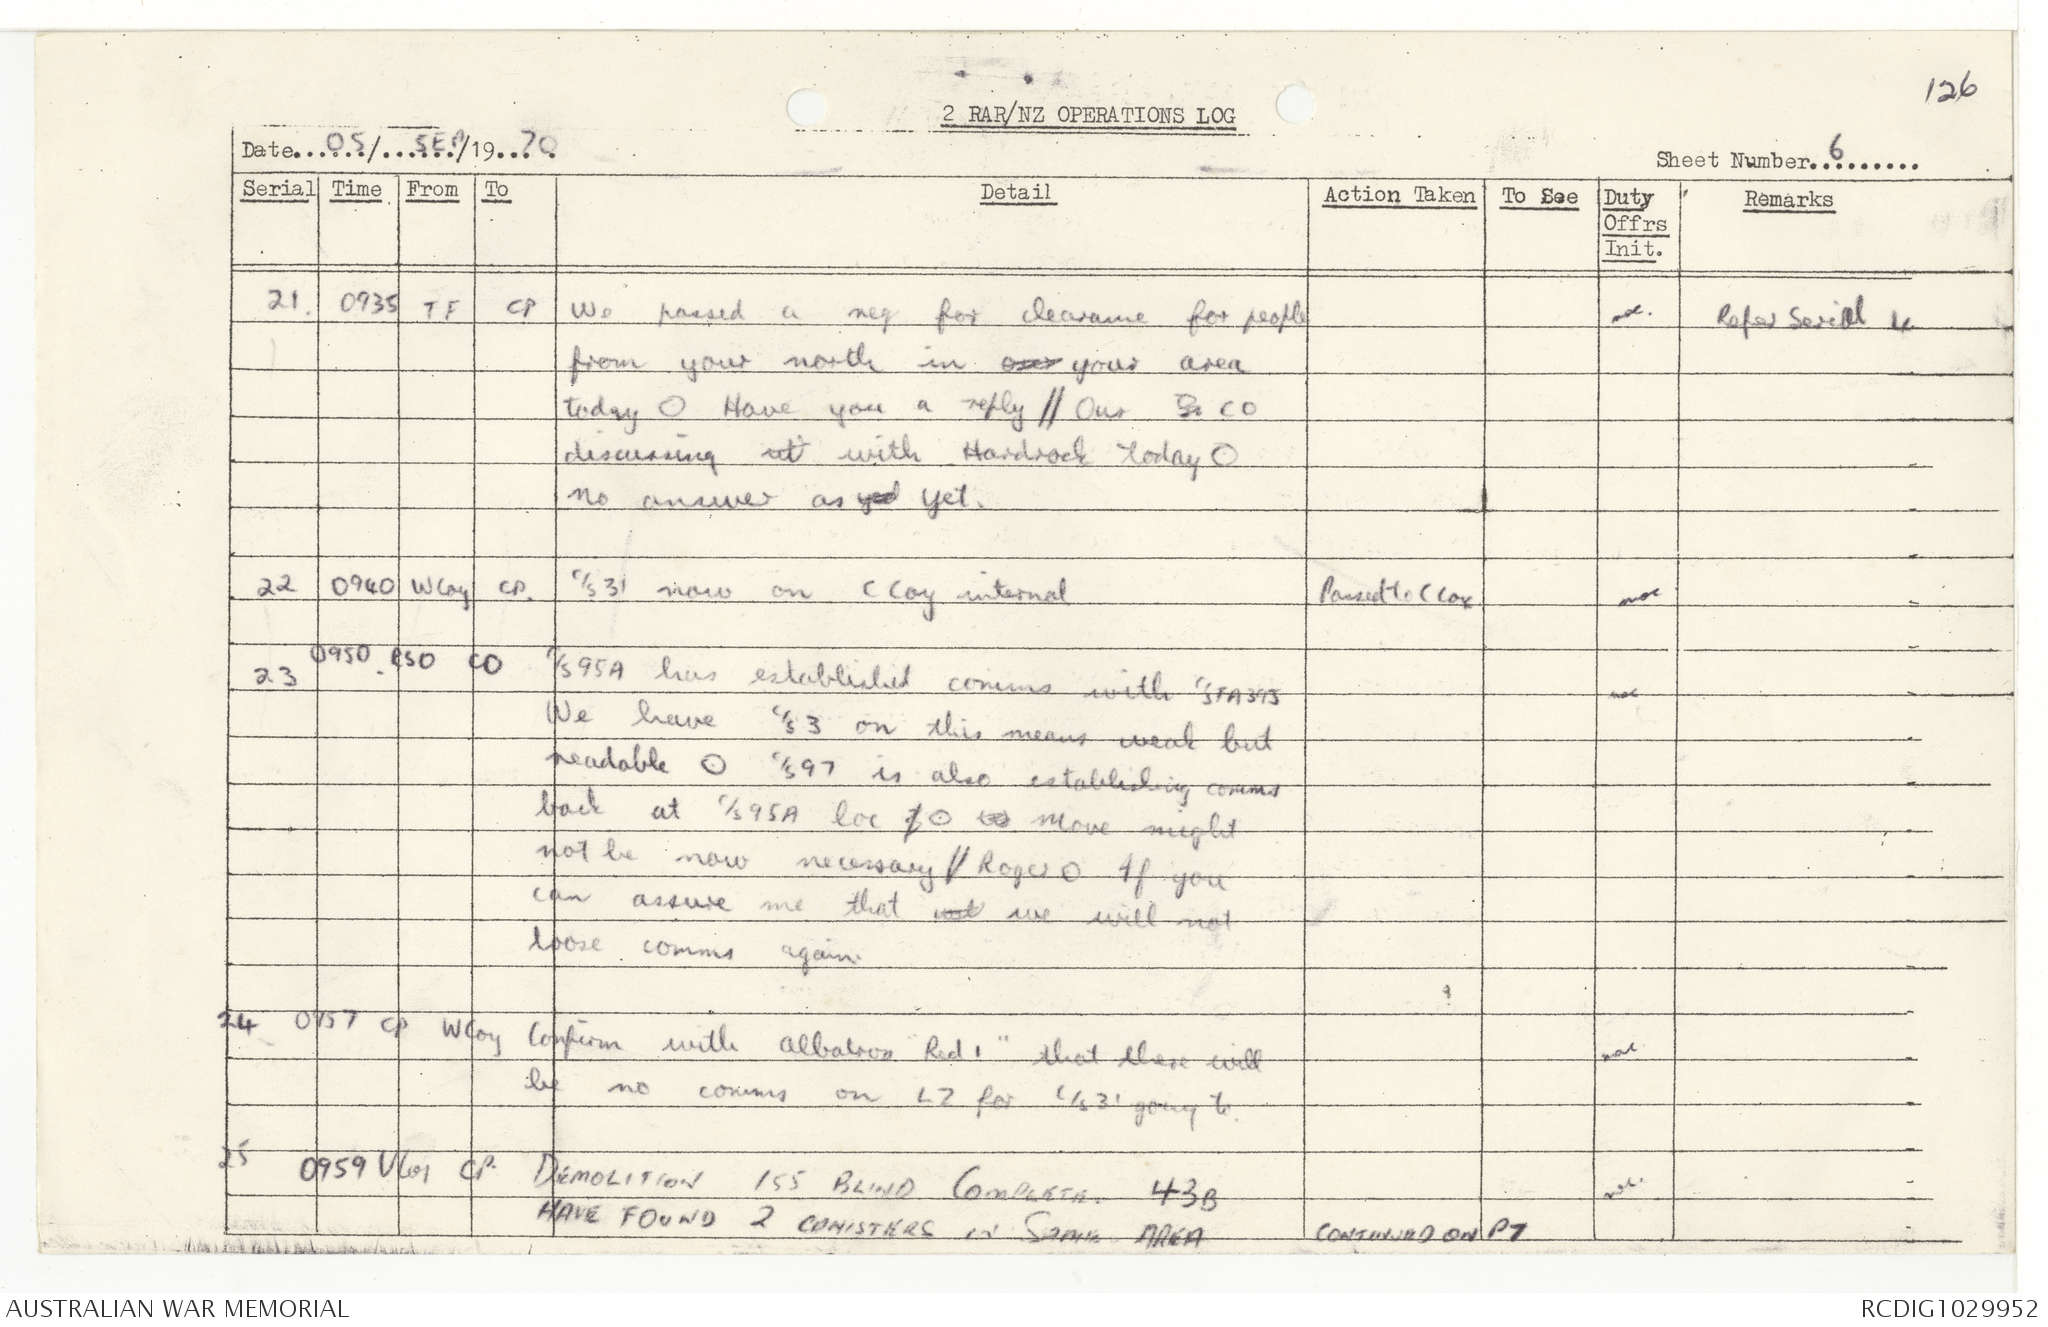 126
2 RAR/NZ OPERATIONS LOG
Date...05.../...SEP./19...70.
Sheet Number..6.........
Serial Time From To Detail Action Taken To See Duty Offrs Init. Remarks
21. 0935 TF CP We passed a neg for clearance for people Refer Serial 4
from your north in your area
today O Have you a reply // Our CO
discussing it with Hardrock today O
no answer as yet.
22 0940 WCoy CP. C/S 31 now on C Coy internal Passed to C Coy
23 0950 RSO CO C/S 95A has established comms with
We have C/S 3 on this means weak but
readable O C/S 97 is also establishing comms
back at C/S 95A loc O move might
not be now necessary // Roger O If you
can assure me that we will not
loose comms again.
24 0957 CP WCoy Confirm with Albatross Red 1" that there will
be no comms on LZ for C/S 31 going to.
25 0959 VCoy CP. DEMOLITION 155 BLIND COMPLETE. 43B
HAVE FOUND 2 CANISTERS IN SAME AREA CONTINUED ON P7
AUSTRALIAN WAR MEMORIAL
RCDIG1029952